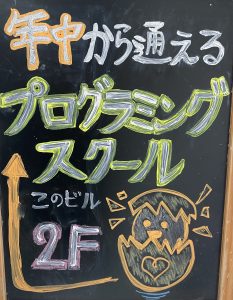 年中から通える
プログラミング
スクール
このビル
2F